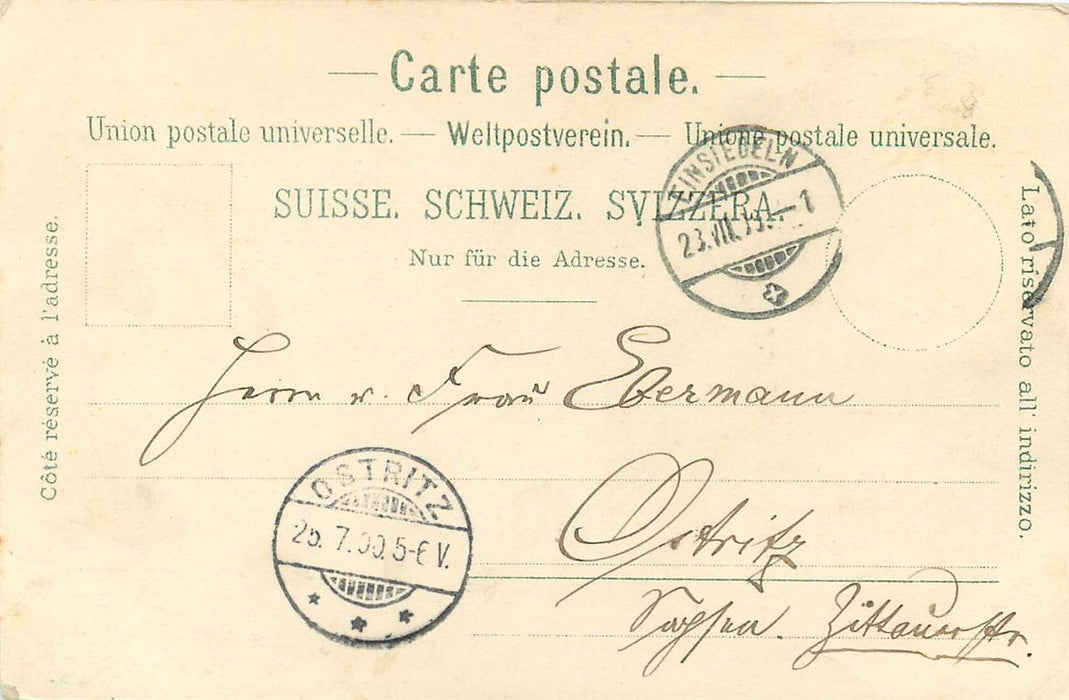 Carte postale.
Union postale universelle. — Weltpostverein. — Unione postale universale.
SUISSE. SCHWEIZ. SVIZZERA.
Nur für die Adresse.
Côté réservé à l'adresse.
Lato riservato all' indirizzo.
EINSIEDELN
23.VII. -1
Herrn u. Frau Ebermann
OSTRITZ
7. 5-6 V.
Ostritz
Sachsen. Zittauerstr.